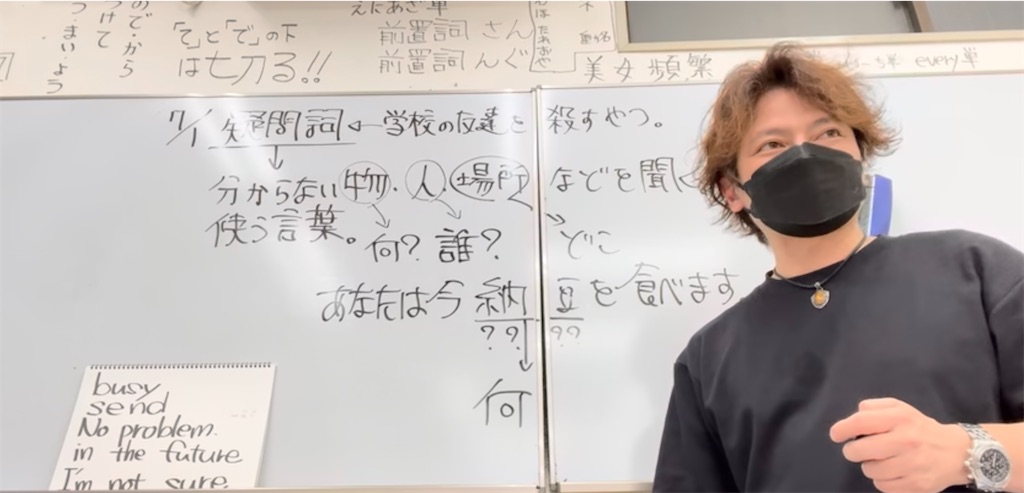 ので・から
つけて
つ・まい・よう
「て」と「で」の下
は七刀る!!
えにあざ単
前置詞 さん
前置詞 んぐ
美女頻繁
every単
7/1 疑問詞←学校の友達を殺すやつ。
分からない物・人・場所などを聞く
使う言葉。何?誰?どこ
あなたは今納豆を食べます。
?? ??
何
busy
send
No problem.
in the future
I'm not sure.